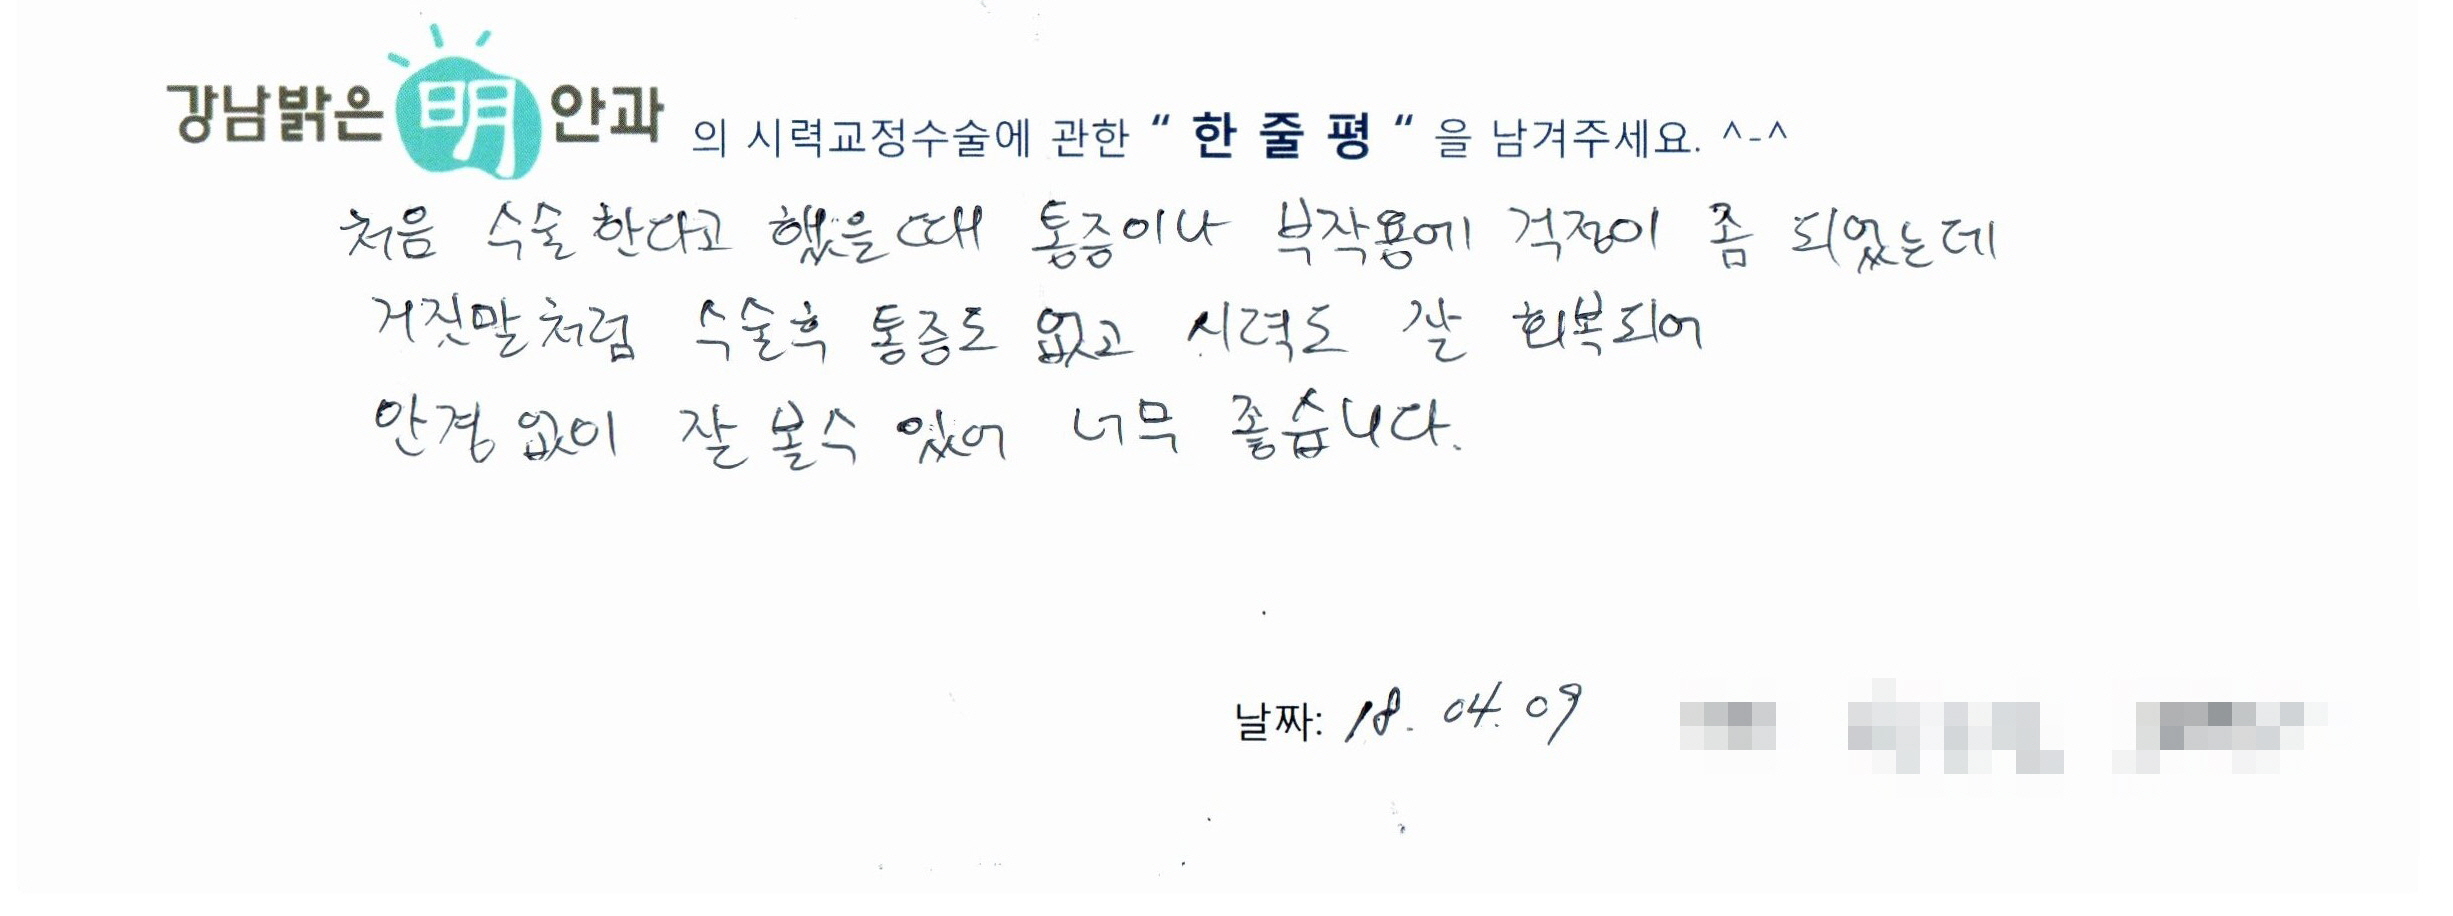 강남밝은 明 안과 의 시력교정수술에 관한 “ 한 줄 평 “ 을 남겨주세요. ^-^
처음 수술한다고 했을때 통증이나 부작용에 걱정이 좀 되었는데
거짓말처럼 수술후 통증도 없고 시력도 잘 회복되어
안경없이 잘 볼수 있어 너무 좋습니다.
날짜: 18. 04. 09